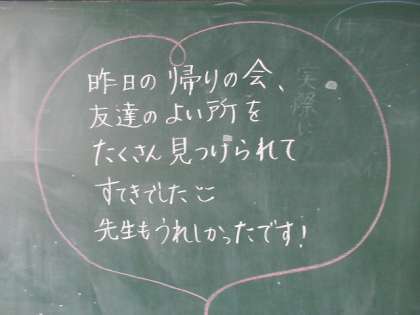 昨日の帰りの会、
友達のよい所を
たくさん見つけられて
すてきでした
先生もうれしかったです!
実際に